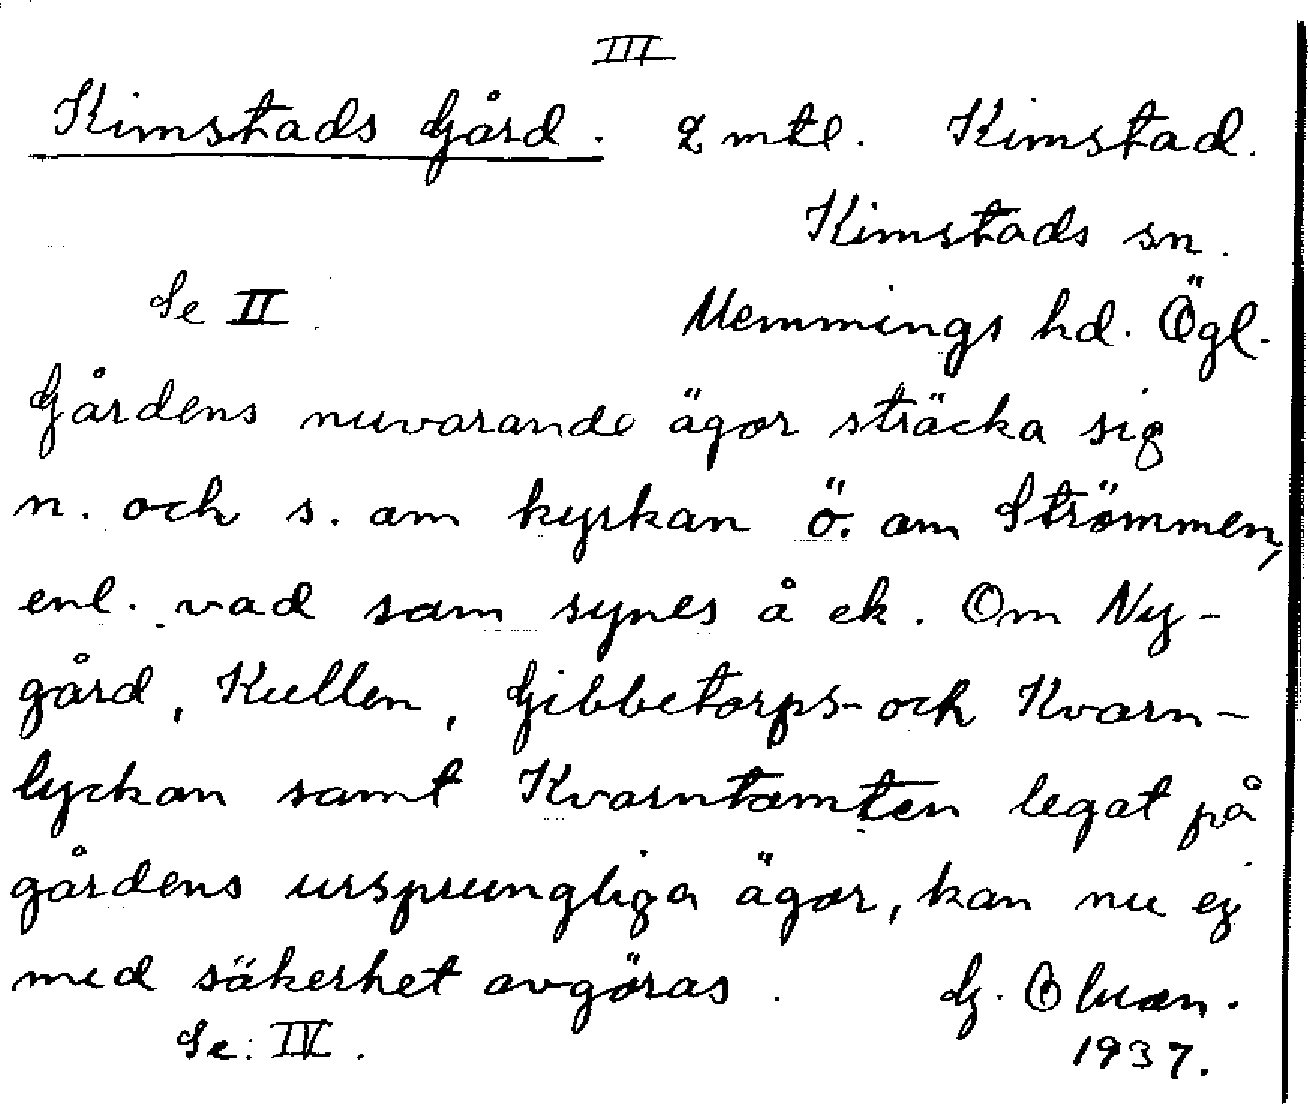 III
Kimstads Gård. 2 mtl. Kimstad.
Kimstads sn.
Se II. Memmings hd. Ögl.
Gårdens nuvarande ägor sträcka sig
n. och s. om kyrkan ö. om Strömmen,
enl. vad som synes å ek. Om Ny-
gård, Kullen, Gibbetorps- och Kvarn-
lyckan samt Kvarntomten legat på
gårdens ursprungliga ägor, kan nu ej
med säkerhet avgöras. G.
Se: IV. 1937.